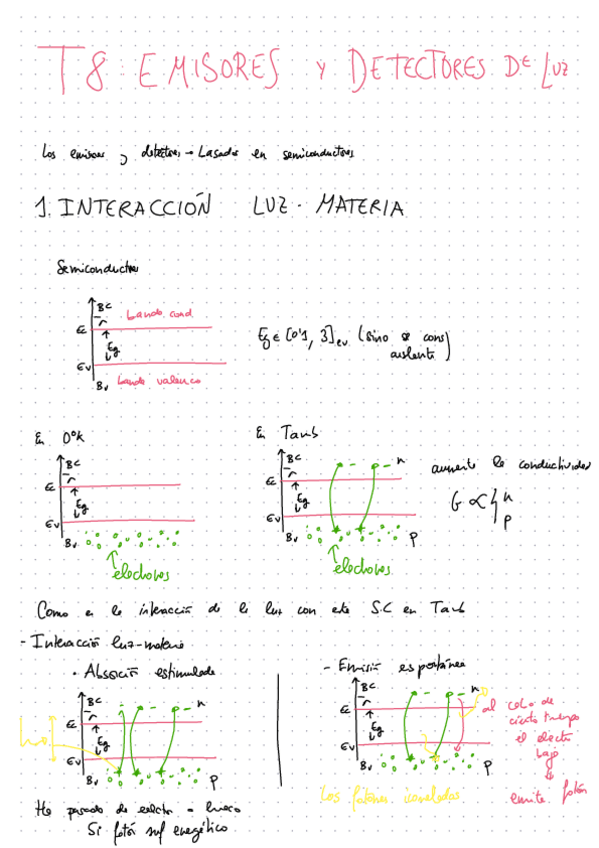 T8: EMISORES y DETECTORES DE LUZ
Los emisores y detectores → basados en semiconductores
1. INTERACCIÓN LUZ - MATERIA
Semiconductor
BC
banda cond
Ec
Eg
Ev
Bv
banda valencia
Eg ∈ [0'1, 3] eV (sino se cons aislante)
En 0°K
BC
Ec
Eg
Ev
Bv
electrones
En Tamb
BC
n
Ec
Eg
Ev
Bv
p
electrones
aumenta la conductividad
n
p
Como es la interacción de la luz con este S.C en Tamb
- Interacción luz-materia
· Absorción estimulada
BC
n
Ec
Eg
Ev
Bv
p
He pasado de electrón a hueco
Si fotón suf energético
- Emisión espontánea
BC
n
Ec
Eg
Ev
Bv
p
al cabo de
cierto tiempo
el electrón
bajo
emite fotón
Los fotones